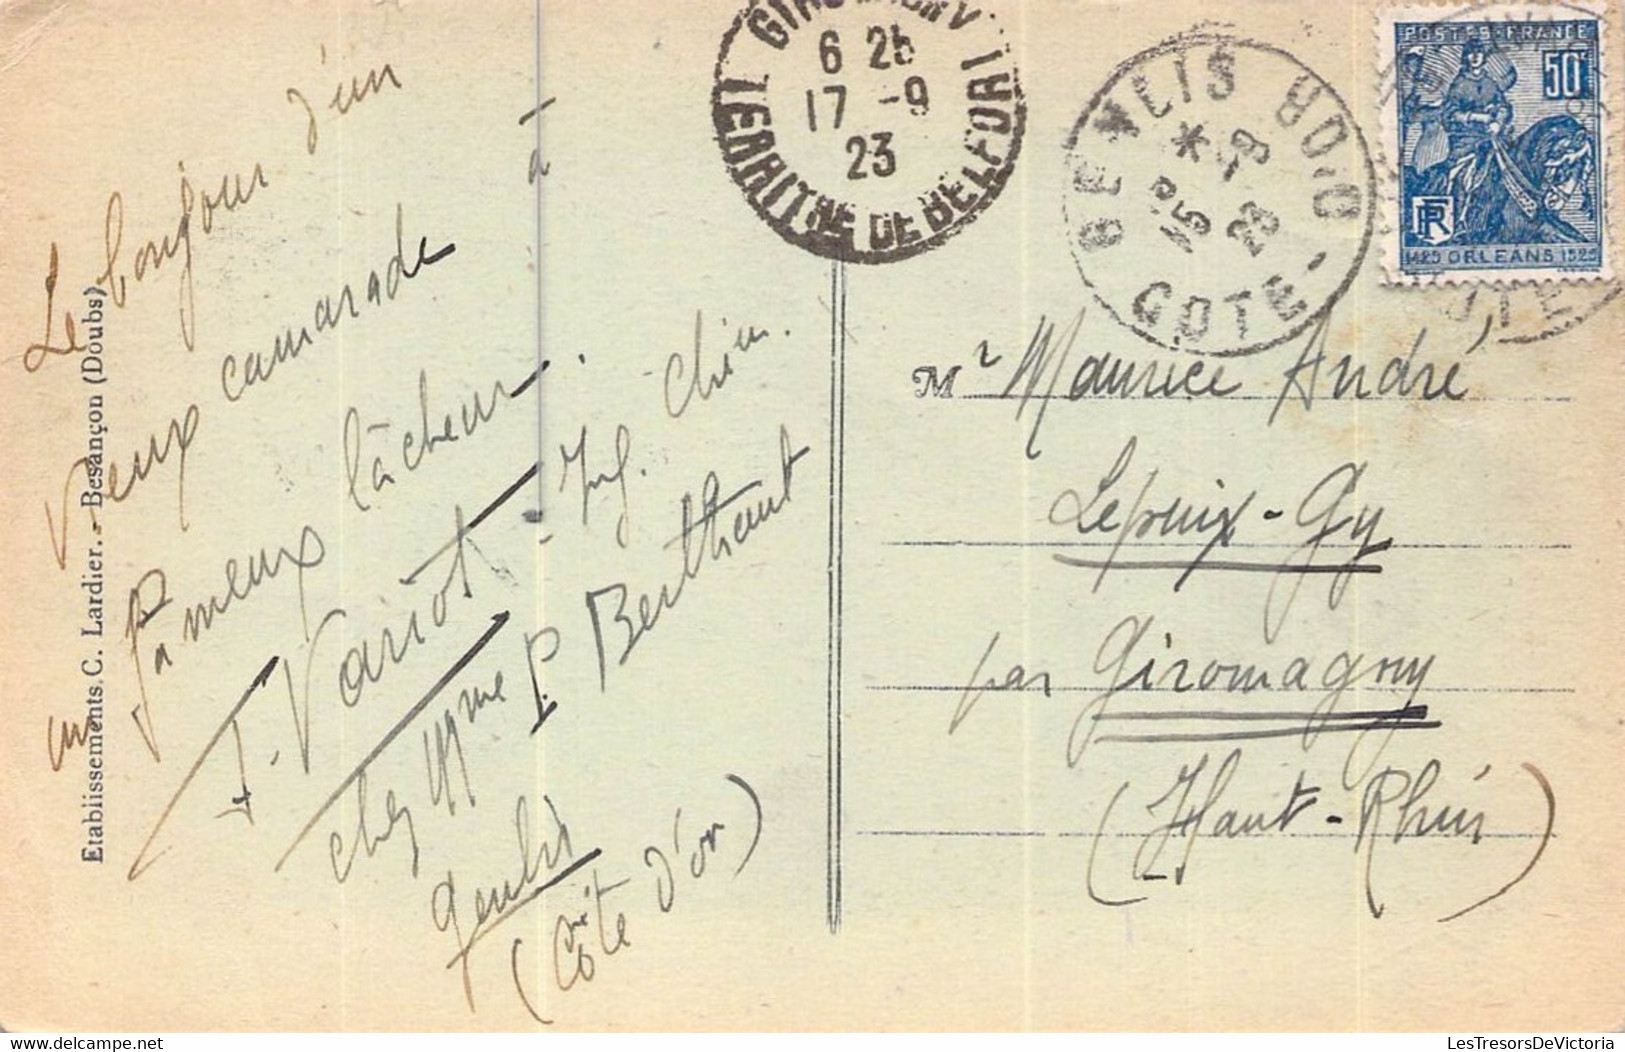 Le bonjour d'un
vieux camarade à
un fameux lâcheur.
J. Variot - Ing. Chim.
chez Mme P. Berthaut
Genlis
(Côte d'or)
Etablissements C. Lardier. - Besançon (Doubs)
TERRITRE DE BELFORT
6 25
17 -9
23
GENLIS
COTE-D'OR
POSTES-FRANCE
50c
RF
1429 ORLEANS 1929
Mr Maurice André
Lepuix-Gy
par Giromagny
(Haut-Rhin)
LesTresorsDeVictoria.com